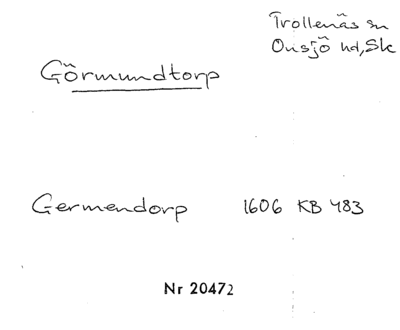 Trollenäs sn
Onsjö hd, Sk
Görmundtorp
Germendorp 1606 KB 483
Nr 20472